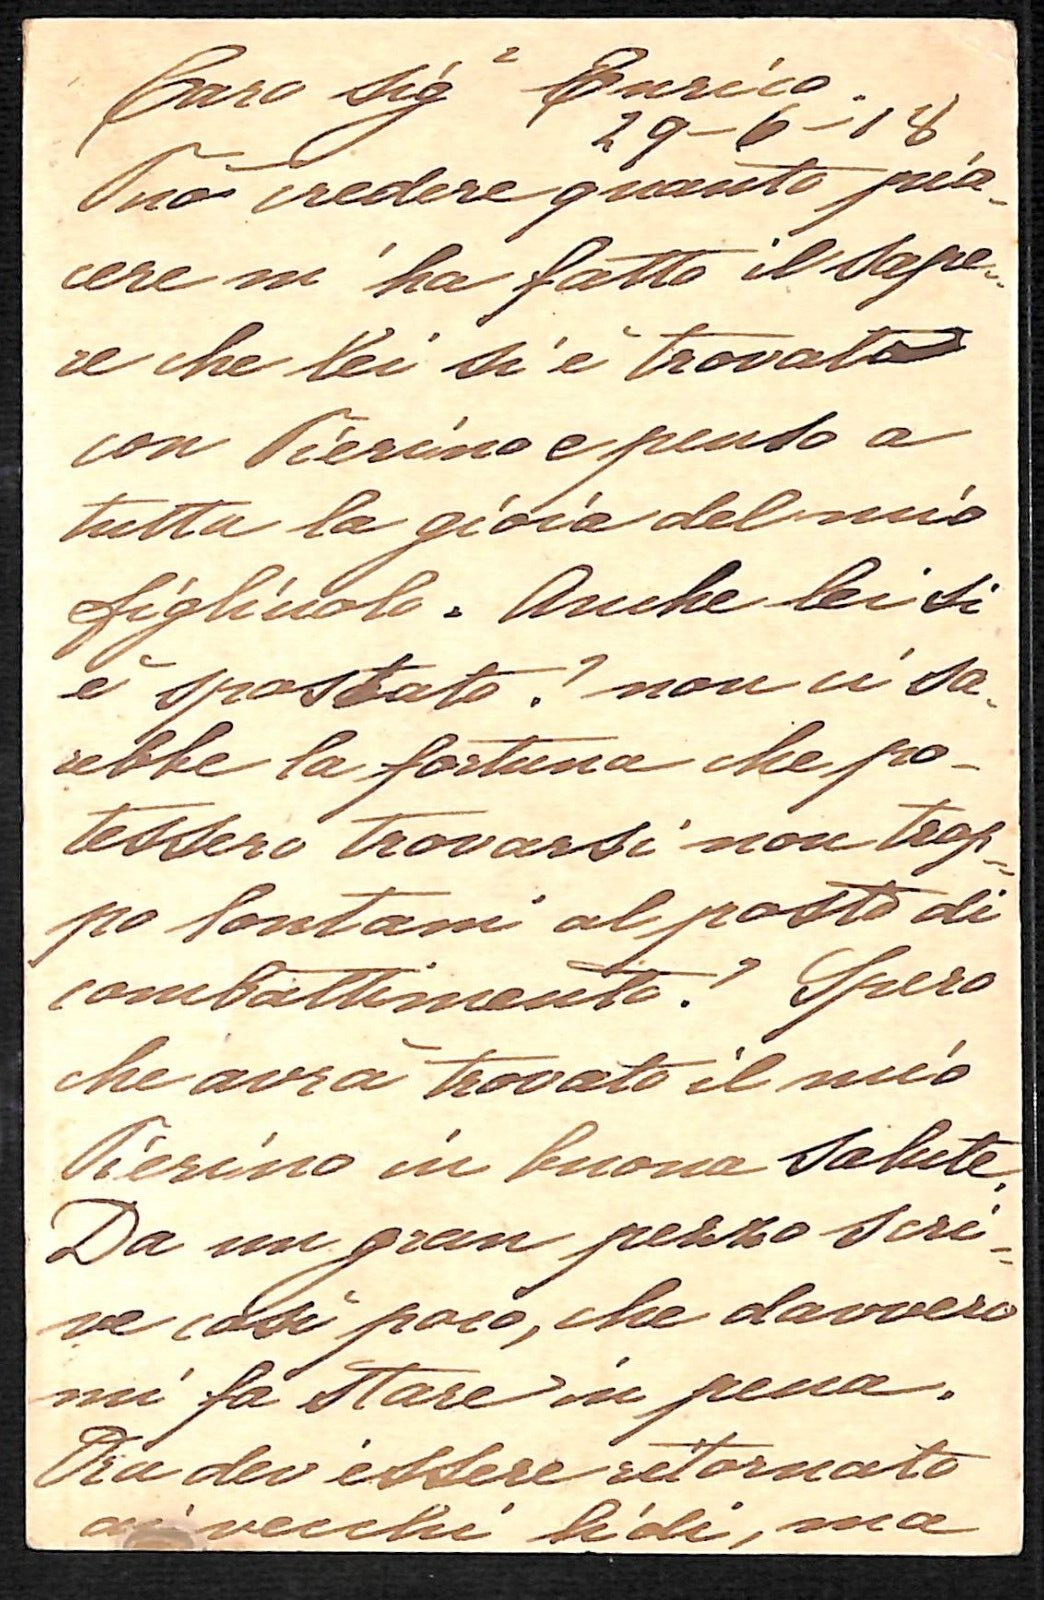 Caro Sig.r Enrico.
29-6-18
Può credere quanto pia-
cere m'ha fatto il sape-
re che lei si è trovato
con Pierino e penso a
tutta la gioia del mio
figliuolo. Anche lei si
è spostato? non ci sa-
rebbe la fortuna che po-
tessero trovarsi non trop-
po lontani al posto di
combattimento? Spero
che avrà trovato il mio
Pierino in buona salute.
Da un gran pezzo scri-
ve così poco, che davvero
mi fa stare in pena.
Ora dev'essere ritornato
ai vecchi lidi, ma